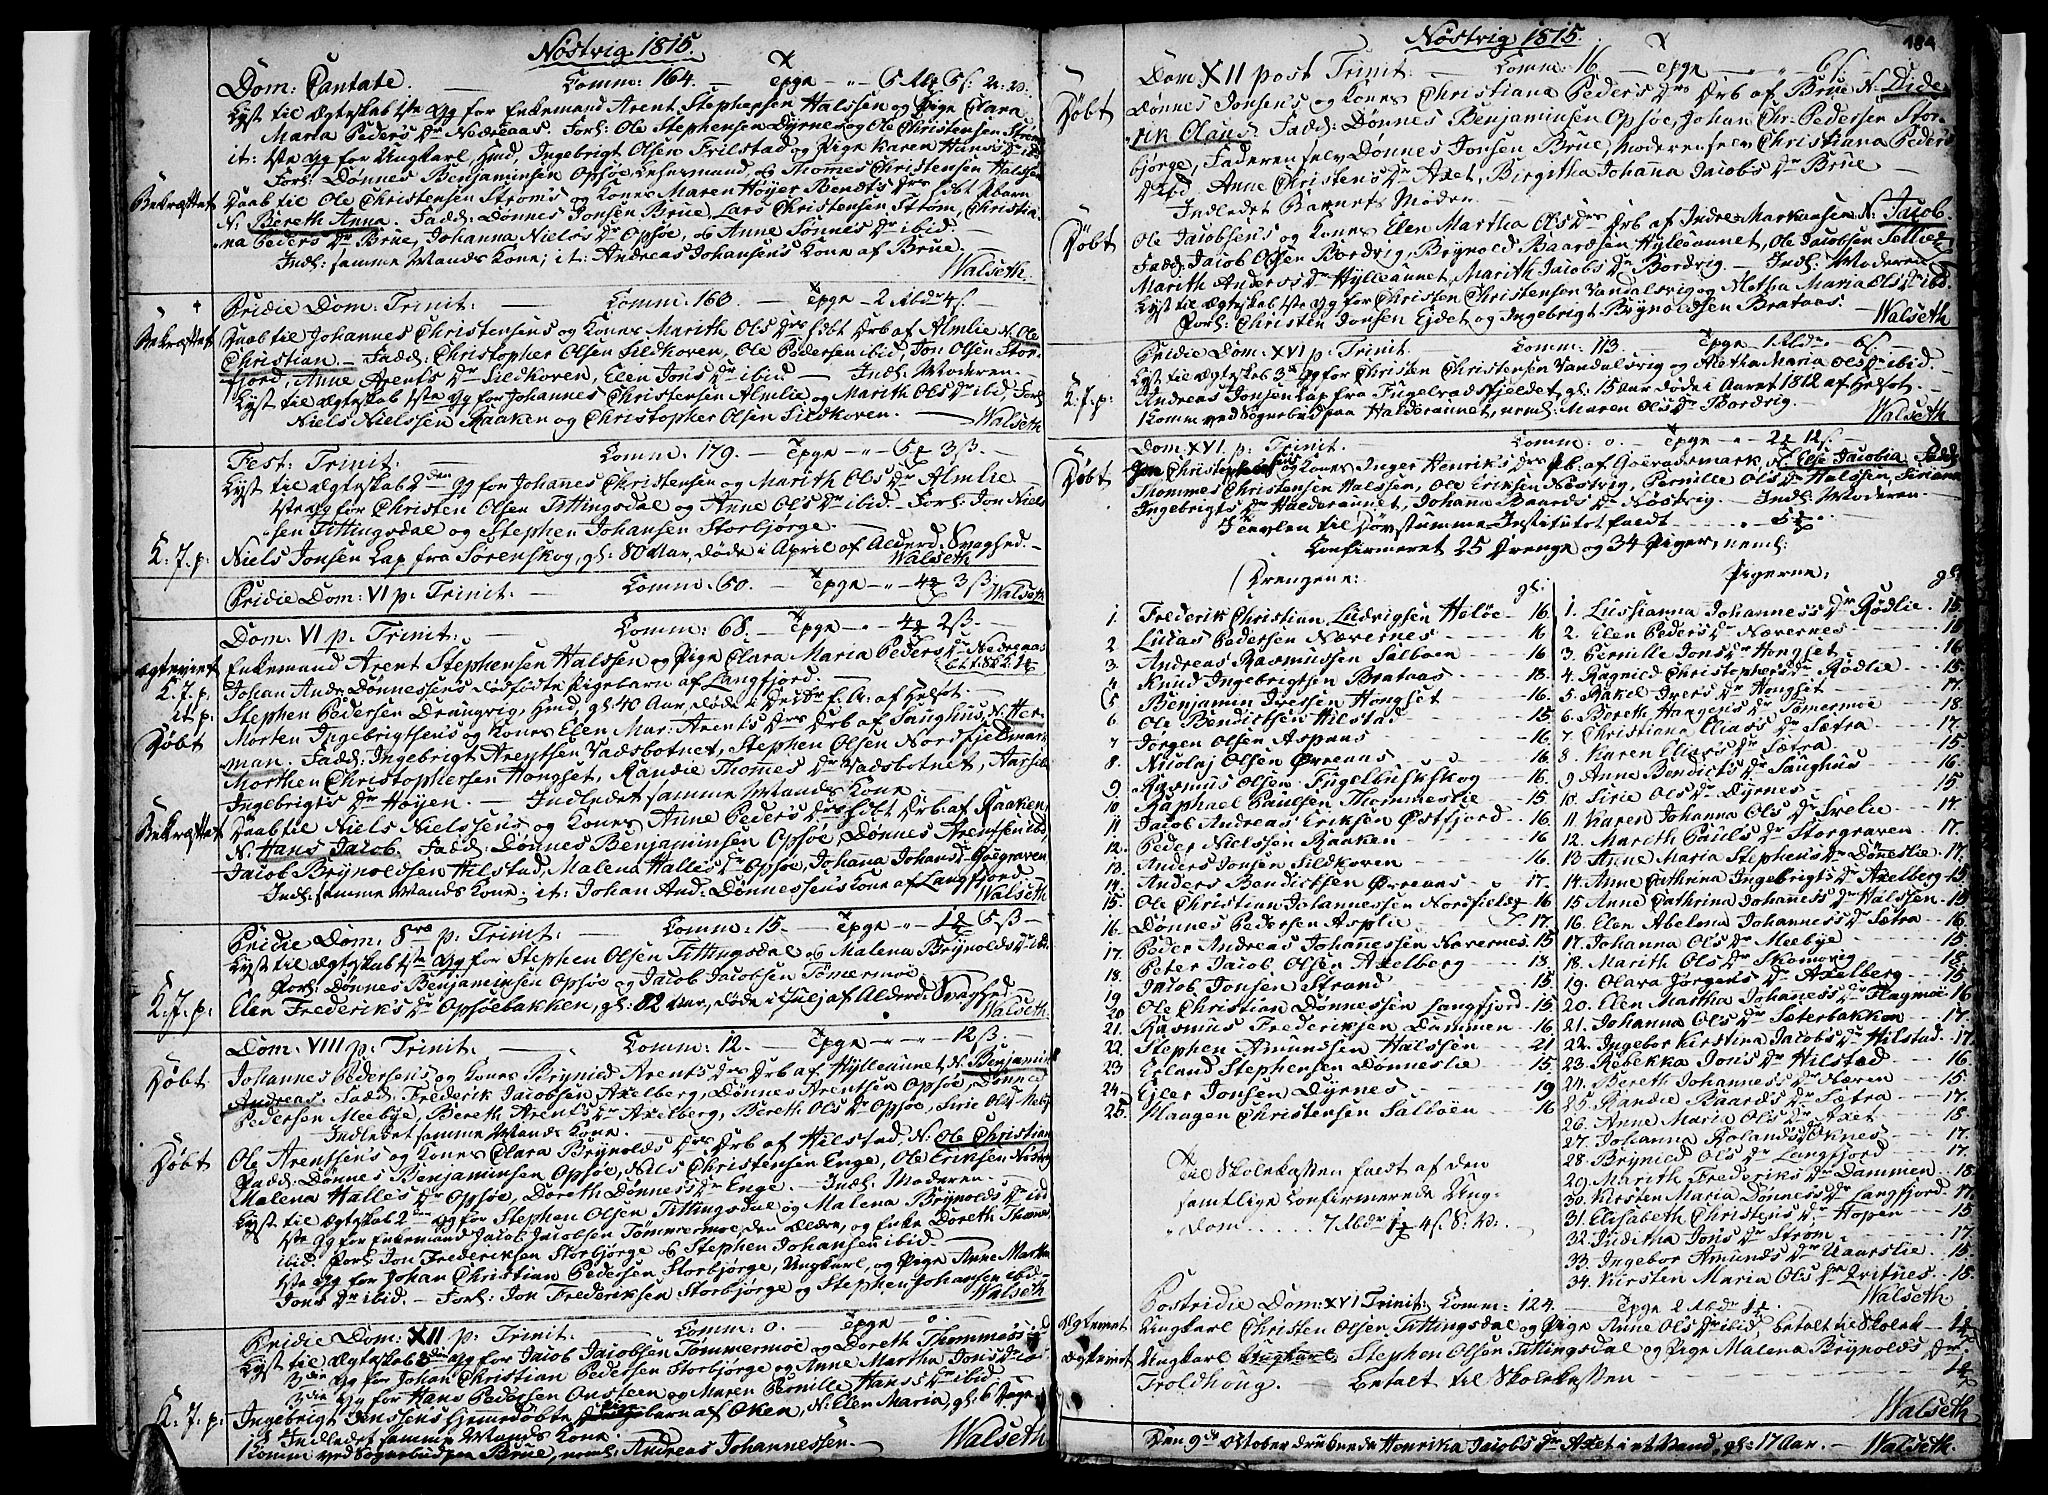 Nöstvig 1815.
Dom: Cantate. Comm: 164. Epge
Lyst til Ægteskab 1ste Gg for Enkemand Arent Stephensen Halssen og Pige Clara
Maria Peders Dr Nedreaas. Forl: Ole Stephensen Dyrnes og Ole Christensen Strøm
it: 1ste Gg for Ungkarl, Hmd, Ingebrigt Olsen Frilstad og Pige Karen Hans Dr ibid
Forl: Dønnes Benjaminsen Opsøe, Lehnsmand, & Thommes Christensen Halssen
Bekræftet Daab til Ole Christensen Strøms og Kones Maren Höyer Bendts Drs
N: Bereth Anna. Fadd: Dønnes Jonsen Brue, Lars Christensen Ström, Christia-
na Peders Dr Brue, Johanna Niels Dr Opsøe, & Anne Tønnes Dr ibid
Indl: samme Mands Kone; it: Andreas Johansens Kone af Brue
Walseth
Pridie Dom: Trinit: Comm: 163. Epge 2 Mdr 4 ß.
Bekræftet Daab til Johannes Christensens og Kones Marith Ols Drs Drb af Almlie N: Ole
Christian. Fadd: Christopher Olsen Sildhoven, Ole Pedersen ibid, Jon Olsen Stor-
fjord, Anne Arents Dr Sildhoven, Elen Jons Dr ibid. Indl: Moderen
Lyst til Ægteskab 1ste Gg for Johannes Christensen Almlie og Marith Ols Dr ibid, Forl:
Niels Nielssen Raaken og Christopher Olsen Sildhoven.
Walseth
Fest: Trinit: Comm: 179. Epge 3 ß.
Lyst til Ægteskab 2den Gg for Johanes Christensen og Marith Ols Dr Almlie
1ste Gg for Christen Olsen Tittingsdal og Anne Ols Dr ibid. Forl: Jon Niels-
sen Tittingsdal og Stephen Johansen Storbjørge.
K. J. p: Niels Jonsen Lap fra Sörenskog, gl: 80 Aar, døde i April af Alderd: Svaghed.
Walseth
Pridie Dom: VI p: Trinit: Comm: 60. Epge 3 ß Walseth
Dom: VI p: Trinit: Comm: 68. Epge 2 ß.
Ægteviet Enkemand Arent Stephensen Halssen og Pige Clara Maria Peders Dr Nedreaas
K. J. p. Johan And: Dønnessens dødfödte Pigebarn af Langfjord.
it p: Stephen Pedersen Drangvig, Hmd, gl: 40 Aar, døde af Helsot.
Døbt Morten Ingebrigtsens og Kones Elen Mar: Arents Drs Drb af Saughus, N: Her-
man. Fadd: Ingebrigt Arentsen Vadsbotnet, Stephen Olsen Nordfjeldmark
Morthen Christophersen Hongset, Randie Thommes Dr Vadsbotnet,
Ingebrigts Dr Höyen. Indledet samme Mands Kone
Bekræftet Daab til Niels Nielssens og Kones Anne Peders Drs Drb: af Raaken,
N: Hans Jacob. Fadd: Dønnes Benjaminsen Opsøe, Dønnes Arentsen ibid,
Jacob Brynoldsen Hilstad, Malena Halles Dr Opsøe, Johanna Johansd
Indl: samme Mands Kone; it: Johan And: Dønnessens Kone af Langfjord
Walseth
Pridie Dom: 8va p: Trinit: Comm: 15. Epge 5 ß
Lyst til Ægteskab 1ste Gg for Stephen Olsen Tittingsdal & Malena Brynolds Dr ibid
Forl: Dønnes Benjaminsen Opsøe og Jacob Jacobsen Tömermoe
K. J. p: Elen Frederiks Dr Opsöebakken, gl: 82 Aar, døde i Julj af Alderd: Svaghed
Walseth
Dom: VIII p: Trinit: Comm: 12. Epge 12 ß.
Döbt Johannes Pedersens og Kones Brynild Arents Drs Drb af Hylleaunet N: Benjamin
Andreas. Fadd: Frederik Jacobsen Axelberg, Dønnes Arentsen Opsøe, Dønnes
Pedersen Meebye, Bereth Arents Dr Axelberg, Bereth Ols Dr Opsøe, Sirie Ols Dr Meby
Indledet samme Mands Kone
Döbt Ole Arentsens og Kones Clara Brynolds Drs Drb af Hilstad, N: Ole Christian
Fadd: Dønnes Benjaminsen Opsøe, Nils Christensen Enge, Ole Eriksen Nöstvig
Malena Halles Dr Opsøe, Doreth Dønness Dr Enge. Indl: Moderen.
Lyst til Ægteskab 2den Gg for Stephen Olsen Tittingsdal og Malena Brynolds Dr ibid
1ste Gg for Enkemand Jacob Jacobsen Tømmermoe, den Ældre, og Enke Doreth Thommes
ibid. Forl: Jon Frederiksen Storbjørge & Stephen Johansen ibid.
1ste Gg for Johan Christian Pedersen Storbjørge, Ungkarl, og Pige Anne Martha
Jons Dr ibid. Forl: Jon Frederiksen Storbjørge og Stephen Johansen ibid.
Walseth
Pridie Dom: XII p: Trinit: Comm: 0. Epge 0.
Lyst til Ægteskab Gg for Jacob Jacobsen Tømmermoe og Doreth Thommes
Gg for Johan Christian Pedersen Storbjørge og Anne Martha Jons Dr
Gg for Hans Pedersen og Maren Pernille Hans Dr ibid.
K. J. p: Ingebrigt hjemmedøbte barn af Oken, N: Elen Maria, gl: 6 Dage
Indledet samme Mands Kone.
1 Komm ved Sognebud paa Brue, neml: Andreas Johannessen.
Walseth
Nöstvig 1815. 184
Dom: XII post Trinit: Comm: 16 Epge 6 ß.
Døbt Dønnes Jonsens og Kones Christiana Peders Drs Drb af Brue N: Dide-
rik Olaus. Fadd: Dønnes Benjaminsen Opsøe, Johan Chr: Pedersen Stor-
bjørge, Faderen selv Dønnes Jonsen Brue, Moderen selv Christiana Peders
Dr ibid, Anne Christens Dr Axet, Birgitha Johana Jacobs Dr Brue
Indledet Barnets Moder.
Døbt Ole Jacobsens og Kones Elen Martha Ols Drs Drb af Indre Markaasen N: Jacob.
Fadd: Jacob Olsen Bordvig, Brynold Baardsen Hylleaunet, Ole Jacobsen
Marith Anders Dr Hylleaunet, Marith Jacobs Dr Bordvig Indl: Moderen
Lyst til Ægteskab 1ste Gg for Christen Christensen Vandalsvig og Aletha Maria Ols Dr ibid.
Forl: Christen Jonsen Ejdet og Ingebrigt Brynoldsen Brataas. Walseth
Pridie Dom: XVI p: Trinit: Comm: 113 Epge 1 Rdlr 6 ß.
Lyst til Ægteskab 3die Gg for Christen Christensen Vandalsvig og Aletha Maria Ols Dr ibid.
K. J. p: Andreas Jonsen Lap fra Fugelradsfjeldet, gl: 15 Aar døde i Aaret 1812 af Helsot.
1 Komm ved Sognebud paa Halderaunet, neml: Maren Ols Dr Bordvig. Walseth
Dom: XVI p: Trinit. Comm: 0. Epge 12 ß.
Døbt Christophersens og Kones Inger Henriks Drs Pb. af N: Else Jacobia, Fadd:
Thommes Christensen Halssen, Ole Eriksen Nöstvig, Pernille Ols Dr Halssen,
Ingebrigts Dr Halderaunet, Johana Baards Dr Nöstvig. Indl: Moderen.
Tavlen til Døvstumme Institutet faldt
Confirmeret 25 Drenge og 34 Piger, neml:
Drengene: gl:
1. Frederik Christian Ludvigsen Heløe 16
2. Lucas Pedersen Nævernes 16
3. Andreas Rasmussen Salboen 16
4. Knud Ingebrigtsen Brataas 18
5. Benjamin Iversen Hongset 16.
6. Ole Bendictsen Hilstad 15.
7. Jørgen Olsen Aspaas 16.
8. Nicolaj Olsen Øvreaas 16.
9. Rasmus Olsen Fugelbuskskog 16.
10. Raphael Paulsen Thommeslie 15.
11. Jacob Andreas Eriksen Østfjord 16.
12. Peder Nielssen Raaken 16
13. Anders Jonsen Sildhoven 16.
14. Anders Bendictsen Øvreaas 17.
15. Ole Christian Johannessen Nordfield 16
16. Dønnes Pedersen Asplie 17.
17. Peder Andreas Johanessen Nævernes 15
18. Peter Jacob Olsen Axelberg 18.
19. Jacob Jonsen Strand 15
20. Ole Christian Dønnessen Langfjord 15.
21. Rasmus Frederiksen Dammen 16
22. Stephen Amundssen Halssen 21
23. Erland Stephensen Dönneslie 15.
24. Ejler Jonsen Dyrnes 19
25. Haagen Christensen Salboen 16
Til Skolekassen faldt af den
samtlige Confirmerede Ung-
dom
Pigerne: gl:
1. Lussianna Johanness Dr Rödlie 15.
2. Elen Peders Dr Nævernes 18
3. Pernille Jons Dr Hongset 16
4. Ragnild Christophers Dr Rödlie 15.
5. Rakel Ivers Dr Hongset 17.
6. Bereth Haagens Dr Tömermoe 18
7. Christiana Eliass Dr Sætra 17.
8. Karen Eliass Dr Sætra 15.
9. Anne Bendicts Dr Saughus 16.
10. Sirie Ols Dr Dyrnes 15
11. Karen Johanna Ols Dr Svelie 17.
12. Marith Pauls Dr Storgraven 17.
13. Anne Maria Stephens Dr Döneslie 17.
14. Anne Cathrina Ingebrigts Dr Axelberg 15
15. Anne Cathrina Johaness Dr Halssen 15
16. Elen Abelena Johanness Dr Sætra 16
17. Johanna Ols Dr Meebye 15.
18. Marith Ols Dr Skomovig 18
19. Olara Jørgens Dr Axelberg 15
20. Elen Martha Johaness Dr Flagmoe 16
21. Johanna Ols Dr Sæterbakken 17.
22. Ingebor Kirstina Jacobs Dr Hilstad 17.
23. Rebekka Jons Dr Hilstad 16
24. Bereth Johanness Dr Næren 15.
25. Randie Baards Dr Sætra 17.
26. Anne Maria Ols Dr Axet 18
27. Johanna Rolands Dr Oxnes 17.
28. Brynild Ols Dr Langfjord 17.
29. Marith Frederiks Dr Dammen 18
30. Kirsten Maria Dønness Dr Langfjord 17.
31. Elisabeth Christens Dr Hopen 15
32. Juditha Jons Dr Strøm 17
33. Ingebor Amunds Dr Uaarslie 15.
34. Kirsten Maria Ols Dr Qvitnes 15.
Walseth
Postridie Dom: XVI Trinit: Comm: 124. Epge
Ægteviet Ungkarl Christen Olsen Tittingsdal og Pige Anne Ols Dr ibid, betalt til Skolek
Ægteviet Ungkarl Stephen Olsen Tittingsdal og Pige Malena Brynolds Dr
Troldhoug. Betalt til Skolekassen
Walseth
Den 9de October druknede Henrika Jacobs Dr Axet i et Vand, gl: 17 Aar. Walseth.